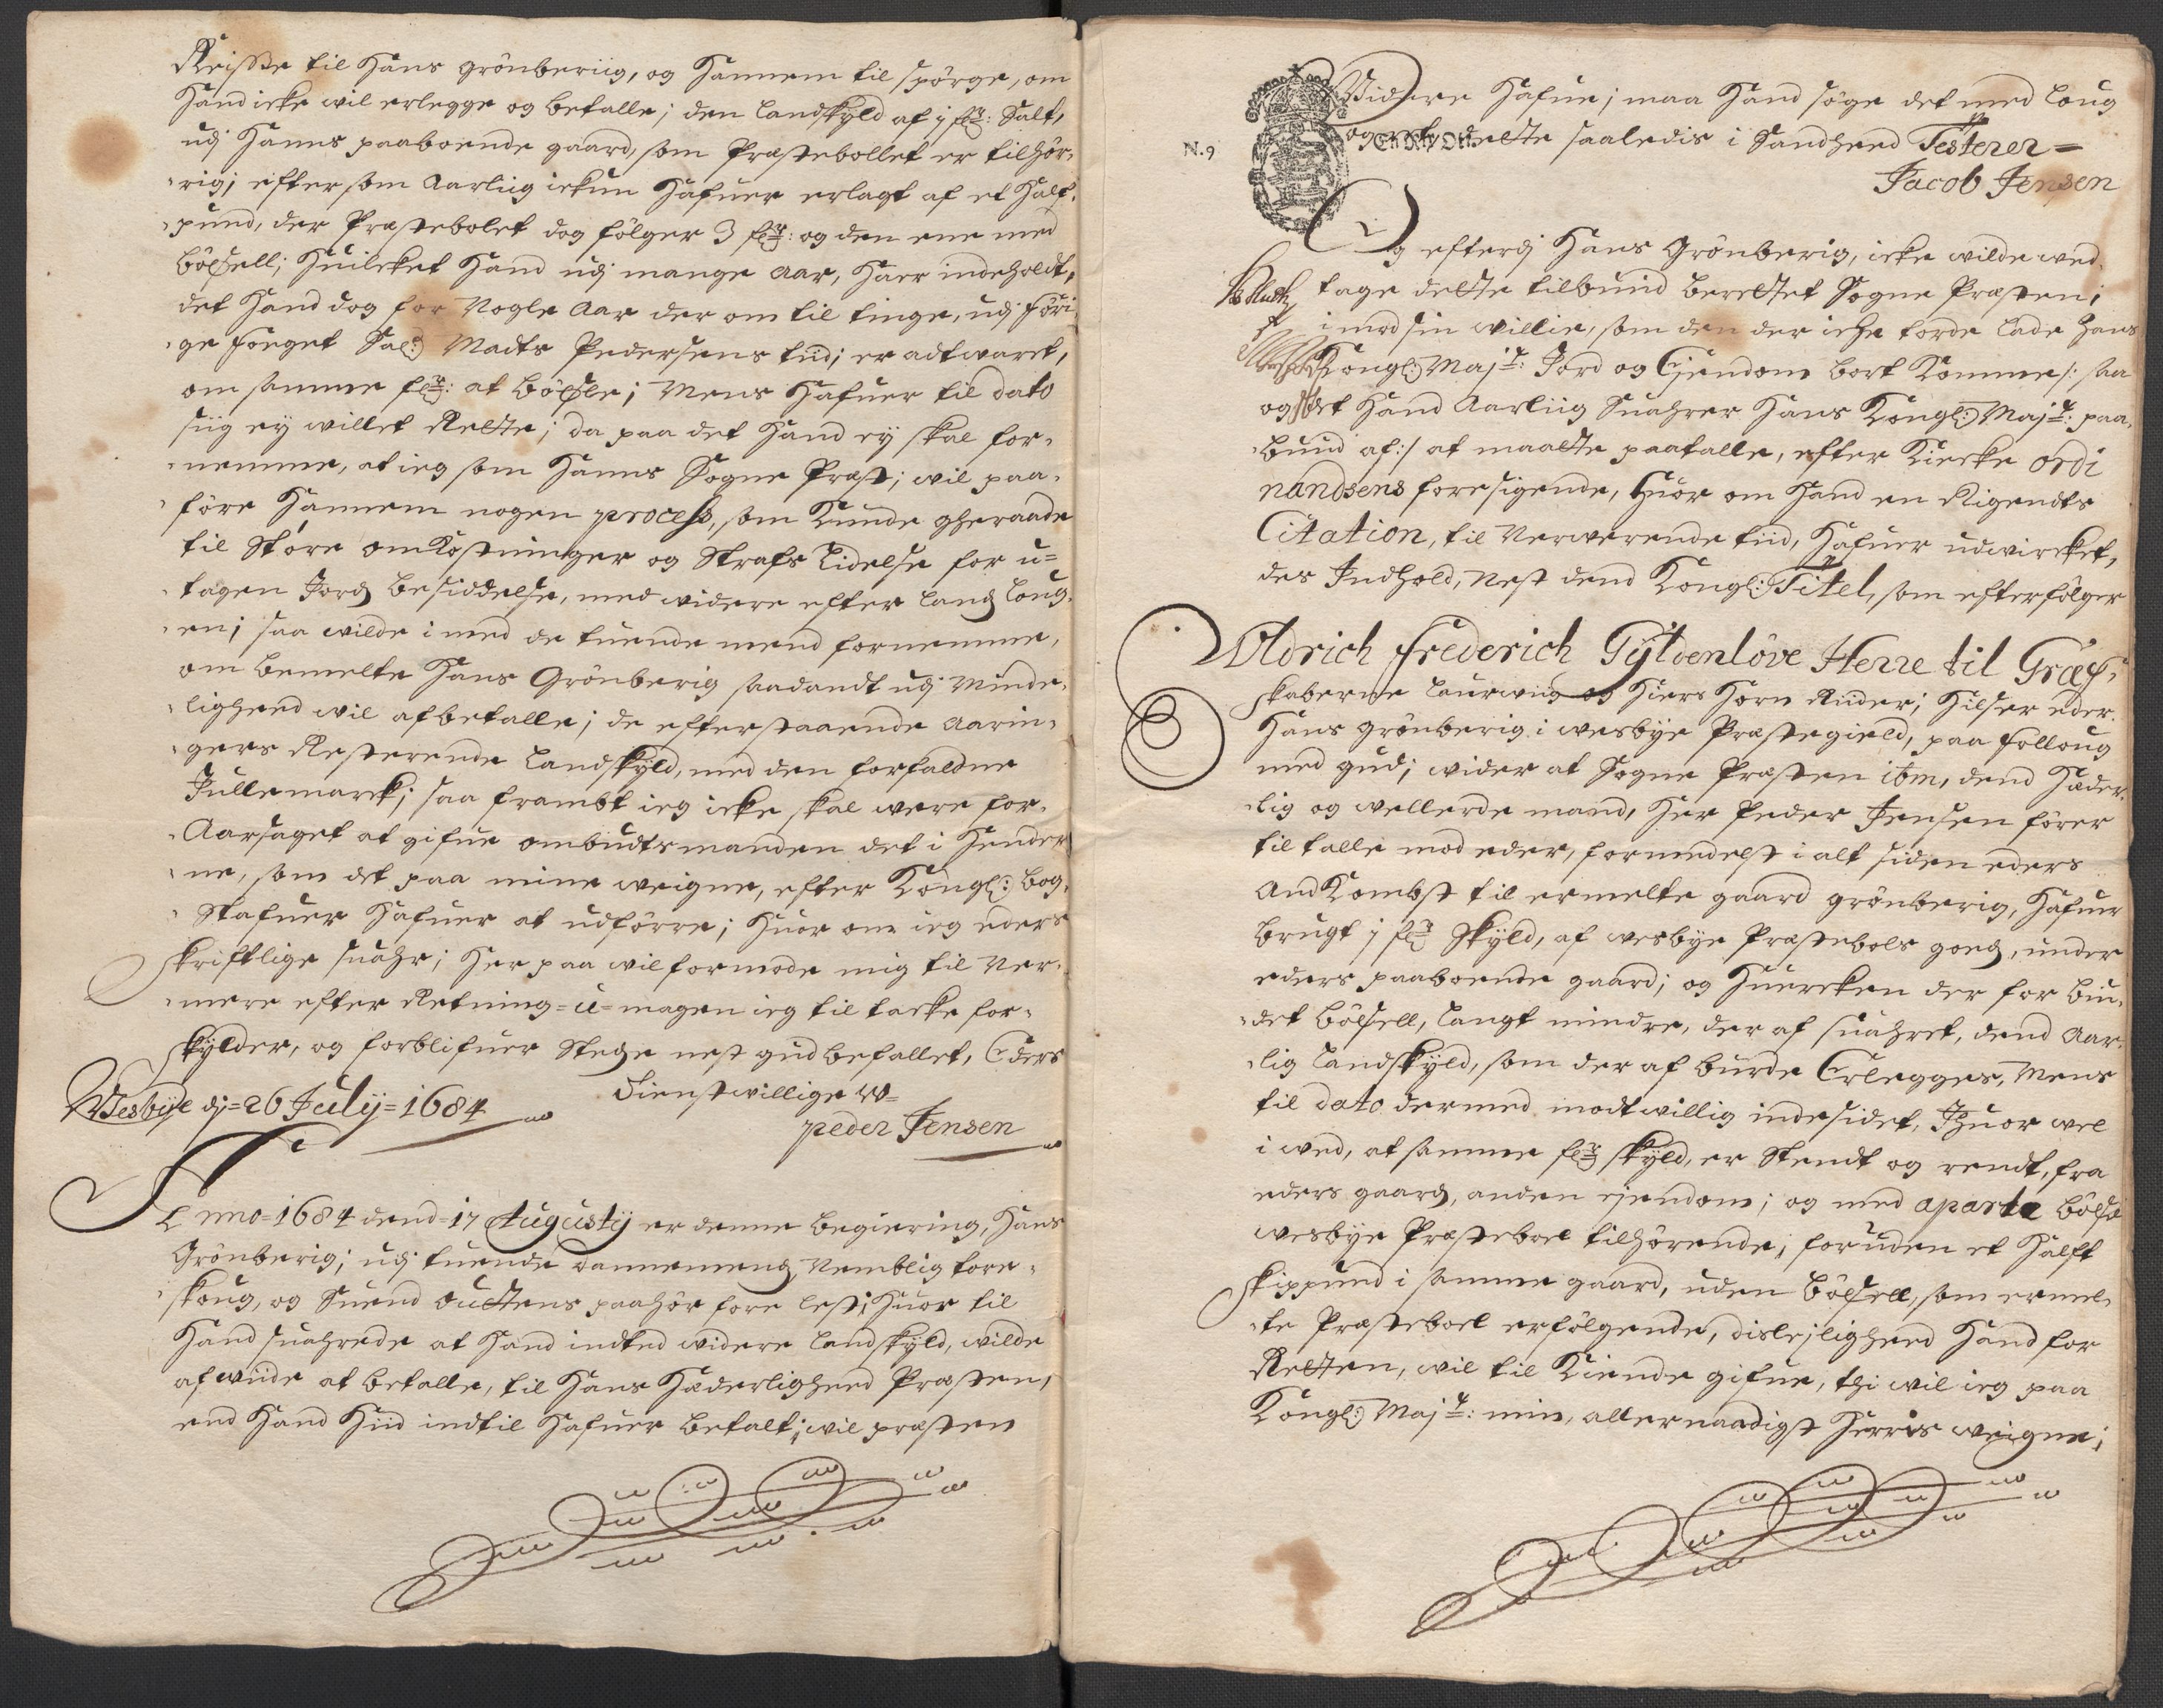 Reisse til Hans grönberiig, og Hannem til spörge, om
Hand icke wil erlegge og betalle; den Landskyld af j fl: Salt,
udj Hanns paaboende gaard, som Præstebollet er tilhör-
rig; eftersom Aarliig ickun Hafuer erlagt af et Half-
pund, der Præstebolet dog fölger 3 fl: og den ene med
böxsell; Huilcket Hand udj mange Aar, Haer indeholdt,
det Hand dog for Nogle Aar der om til tinge, udj föri-
ge foeget Sal: Madts Pedersens tiid; er adtwaret,
om samme fl: at böxsle; Mens Hafuer til dato
siig ey willet Rette; da paa det Hand eÿ skal for-
nemme, at ieg som Hanns Sogne Præst; wil paa-
före Hannem nogen process, som Kunde gheraade
til Störe omKostninger og Strafs Lidelse for u=
tagen Jord besiddelse, med widere efter Land Loug-
en; saa wilde i med de tuende mend fornemme,
om bemelte Hans Grönberig saadandt udj Minde-
lighed wil afbetalle; de efterstaaende Aarin-
gers Resterende Landskÿld, med den forfaldne
Jullemarck; saa frambt ieg icke skal were for-
Aarsaget at gifue ombudtsmanden det i Hender
ne, som det paa mine weigne, efter Kongl: bog-
stafuer Hafuer at udförre; Huor om ieg eders
skriftlige suahr; Her paa wil formode mig til Ner-
mere efter Retning = u = magen ieg til tacke for-
skÿlder, og forblifuer Stedze nest gud befallet, Eders
Wesbÿe dj = 26 Julÿ = 1684 Dienstwillige W=
peder Jensen
Anno = 1684 dend = 17 Augustÿ er denne begiering, Hans
Grönberig; udj tuende dannemend, Nemblig tore-
skoug, og Suend Outtens paahör fore lest; Huor til
Hand suahrede at Hand indted widere Landskÿld, wilde
af wiide at betalle, til Hans Hæderlighed Præsten,
end Hand Hiid indtil Hafuer betalt; wil præsten
Widere Hafue; maa Hand söge det med Loug
N. 9
og Rette dette saaledis i Sandhed Testerer =
Jacob Jensen
Og efterdj Hans Grönberig, icke wilde wed-
tage dette tilbuud berettet Sogne Præsten;
imod sin willie, som den der iche torde lade Hans
Kongl: Maj: Jord og Ejendom bort Komme /: saa
og det Hand Aarliig Suahrer Hans Kongl: Maj: paa-
buud af :/ at maatte paatalle, efter Kircke ordi
nandsens foresigende, Huor om Hand en Rigendts
Citation, til Nerwerende tiid, Hafuer udwircket,
des Indhold, Nest dend Kongl: Titel, som efterfölger
Woldrich frederich Gÿldenlöve Herre til Græf-
skaberne Laurwiig og Hiers Horn Riider; Hilser eder
Hans grönberig i wesbÿe Præstegield, paa folloug
med gud; wider at Sogne Præsten ibm, dend Hæder-
lig og wellerde mand, Her Peder Jensen förer
til talle mod eder, formedelst i alt siden eders
AndKombst til ermelte gaard grönberig, Hafuer
brugt j fl Skÿld, af wesbÿe Præstebols goed, under
eders paaboende gaard; og Huercken der for bun-
det böxsell, langt mindre, der af suahret, dend Aar-
lig Landskÿld, som der af burde Erlegges, Mens
til dato dermed modtwillig indesidet, Ihuor wel
i wed, at samme fl skÿld, er Stendt og rendt, fra
eders gaard, anden ejendom; og med aparte böxsel
wesbÿe Præsteboel tilhörende; foruden et Halft
skippund i samme gaard, uden böxsell, som ermel-
te Præsteboel erfölgende, dislejlighed Hand for
Retten, wil til Kiende gifue, thi wil ieg paa
Kongl: Maj: min, allernaadigst Herris weigne;